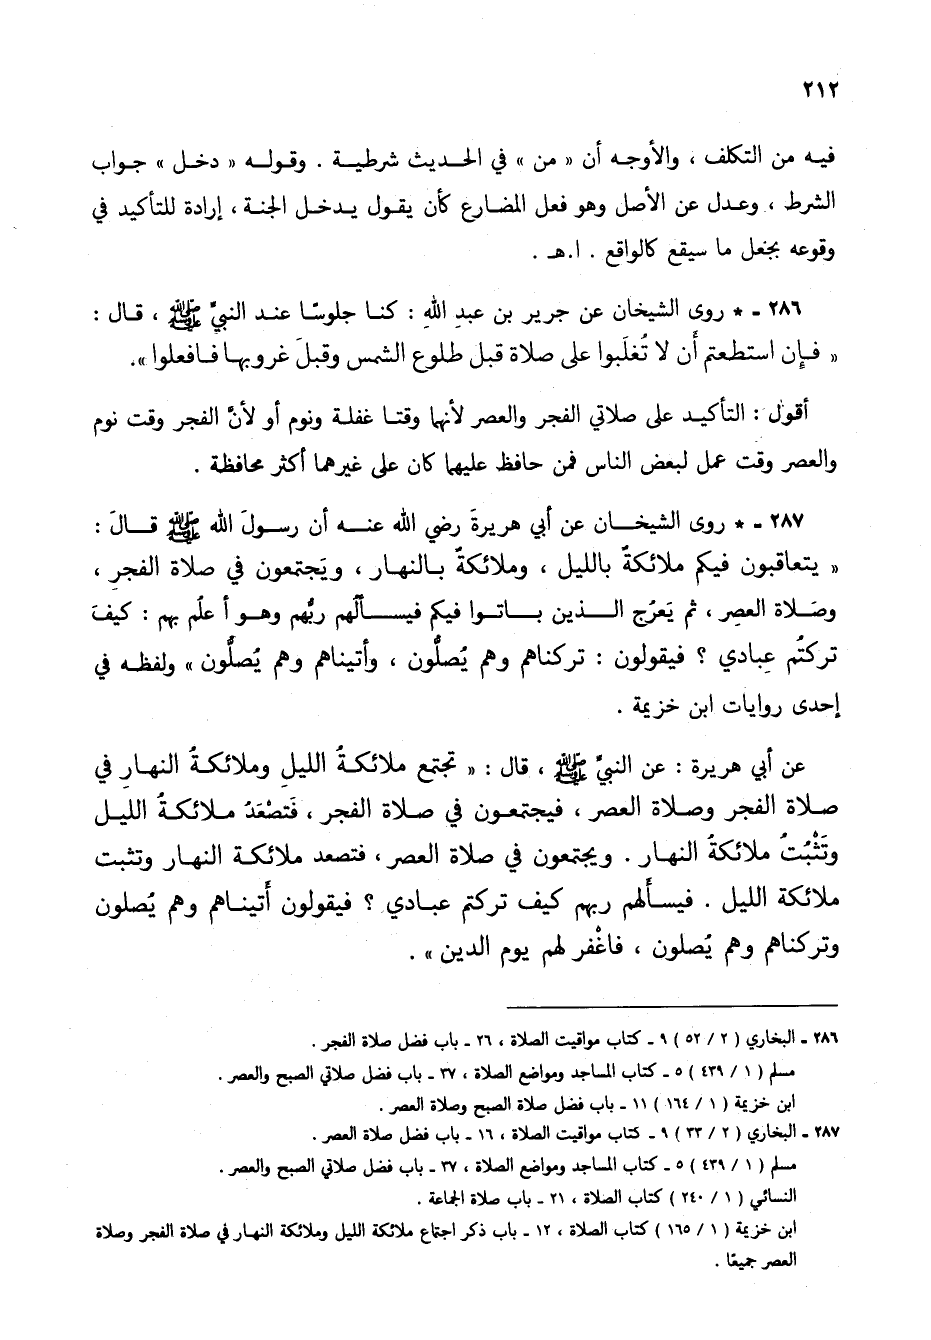 ٢١٢
فيه من التكلف ، والأوجه أن « من » في الحديث شرطية . وقوله « دخل » جواب
الشرط ، وعدل عن الأصل وهو فعل المضارع كأن يقول يدخل الجنة ، إرادة للتأكيد في
وقوعه بجعل ما سيقع كالواقع . ا.هـ .
٢٨٦ - * روى الشيخان عن جرير بن عبدِ اللهِ : كنا جلوسًا عند النبيِّ ﷺ ، قال :
« فإن استطعتم أَن لا تُغلَبوا على صلاة قبل طلوع الشمس وقبلَ غروبها فافعلوا ».
أقول : التأكيد على صلاتي الفجر والعصر لأنها وقتا غفلة ونوم أو لأنَّ الفجر وقت نوم
والعصر وقت عمل لبعض الناس فمن حافظ عليها كان على غيرهما أكثر محافظة .
٢٨٧ - * روى الشيخان عن أبي هريرةَ رضي الله عنه أن رسولَ الله ﷺ قالَ :
« يتعاقبون فيكم ملائكةٌ بالليل ، وملائكةٌ بالنهار ، ويَجتمعون في صلاة الفجرِ ،
وصَلاة العصرِ ، ثم يَعرُج الذين باتوا فيكم فيسألُهم ربُّهم وهو أعلَم بهم : كيفَ
تركتُم عِبادي ؟ فيقولون : تركناهم وهم يُصلُّون ، وأتيناهم وهم يُصلُّون » ولفظه في
إحدى روايات ابن خزيمة .
عن أبي هريرة : عن النبيِّ ﷺ ، قال : « تجتمع ملائكةُ الليلِ وملائكةُ النهارِ في
صلاة الفجر وصلاة العصر ، فيجتمعون في صلاة الفجر ، فَتصْعَدُ ملائكةُ الليل
وتَثْبُتُ ملائكةُ النهار . ويجتمعون في صلاة العصر ، فتصعد ملائكة النهار وتثبت
ملائكة الليل . فيسأَلهم ربهم كيف تركتم عبادي ؟ فيقولون أَتيناهم وهم يُصلون
وتركناهم وهم يُصلون ، فاغْفر لهم يوم الدين » .
٢٨٦ - البخاري ( ٢ / ٥٢ ) ٩ - كتاب مواقيت الصلاة ، ٢٦ - باب فضل صلاة الفجر .
مسلم ( ١ / ٤٣٩ ) ٥ - كتاب المساجد ومواضع الصلاة ، ٣٧ - باب فضل صلاتي الصبح والعصر .
ابن خزيمة ( ١ / ١٦٤ ) ١١ - باب فضل صلاة الصبح وصلاة العصر .
٢٨٧ - البخاري ( ٢ / ٣٣ ) ٩ - كتاب مواقيت الصلاة ، ١٦ - باب فضل صلاة العصر .
مسلم ( ١ / ٤٣٩ ) ٥ - كتاب المساجد ومواضع الصلاة ، ٣٧ - باب فضل صلاتي الصبح والعصر .
النسائي ( ١ / ٢٤٠ ) كتاب الصلاة ، ٢١ - باب صلاة الجماعة .
ابن خزيمة ( ١ / ١٦٥ ) كتاب الصلاة ، ١٢ - باب ذكر اجتماع ملائكة الليل وملائكة النهار في صلاة الفجر وصلاة
العصر جميعًا .